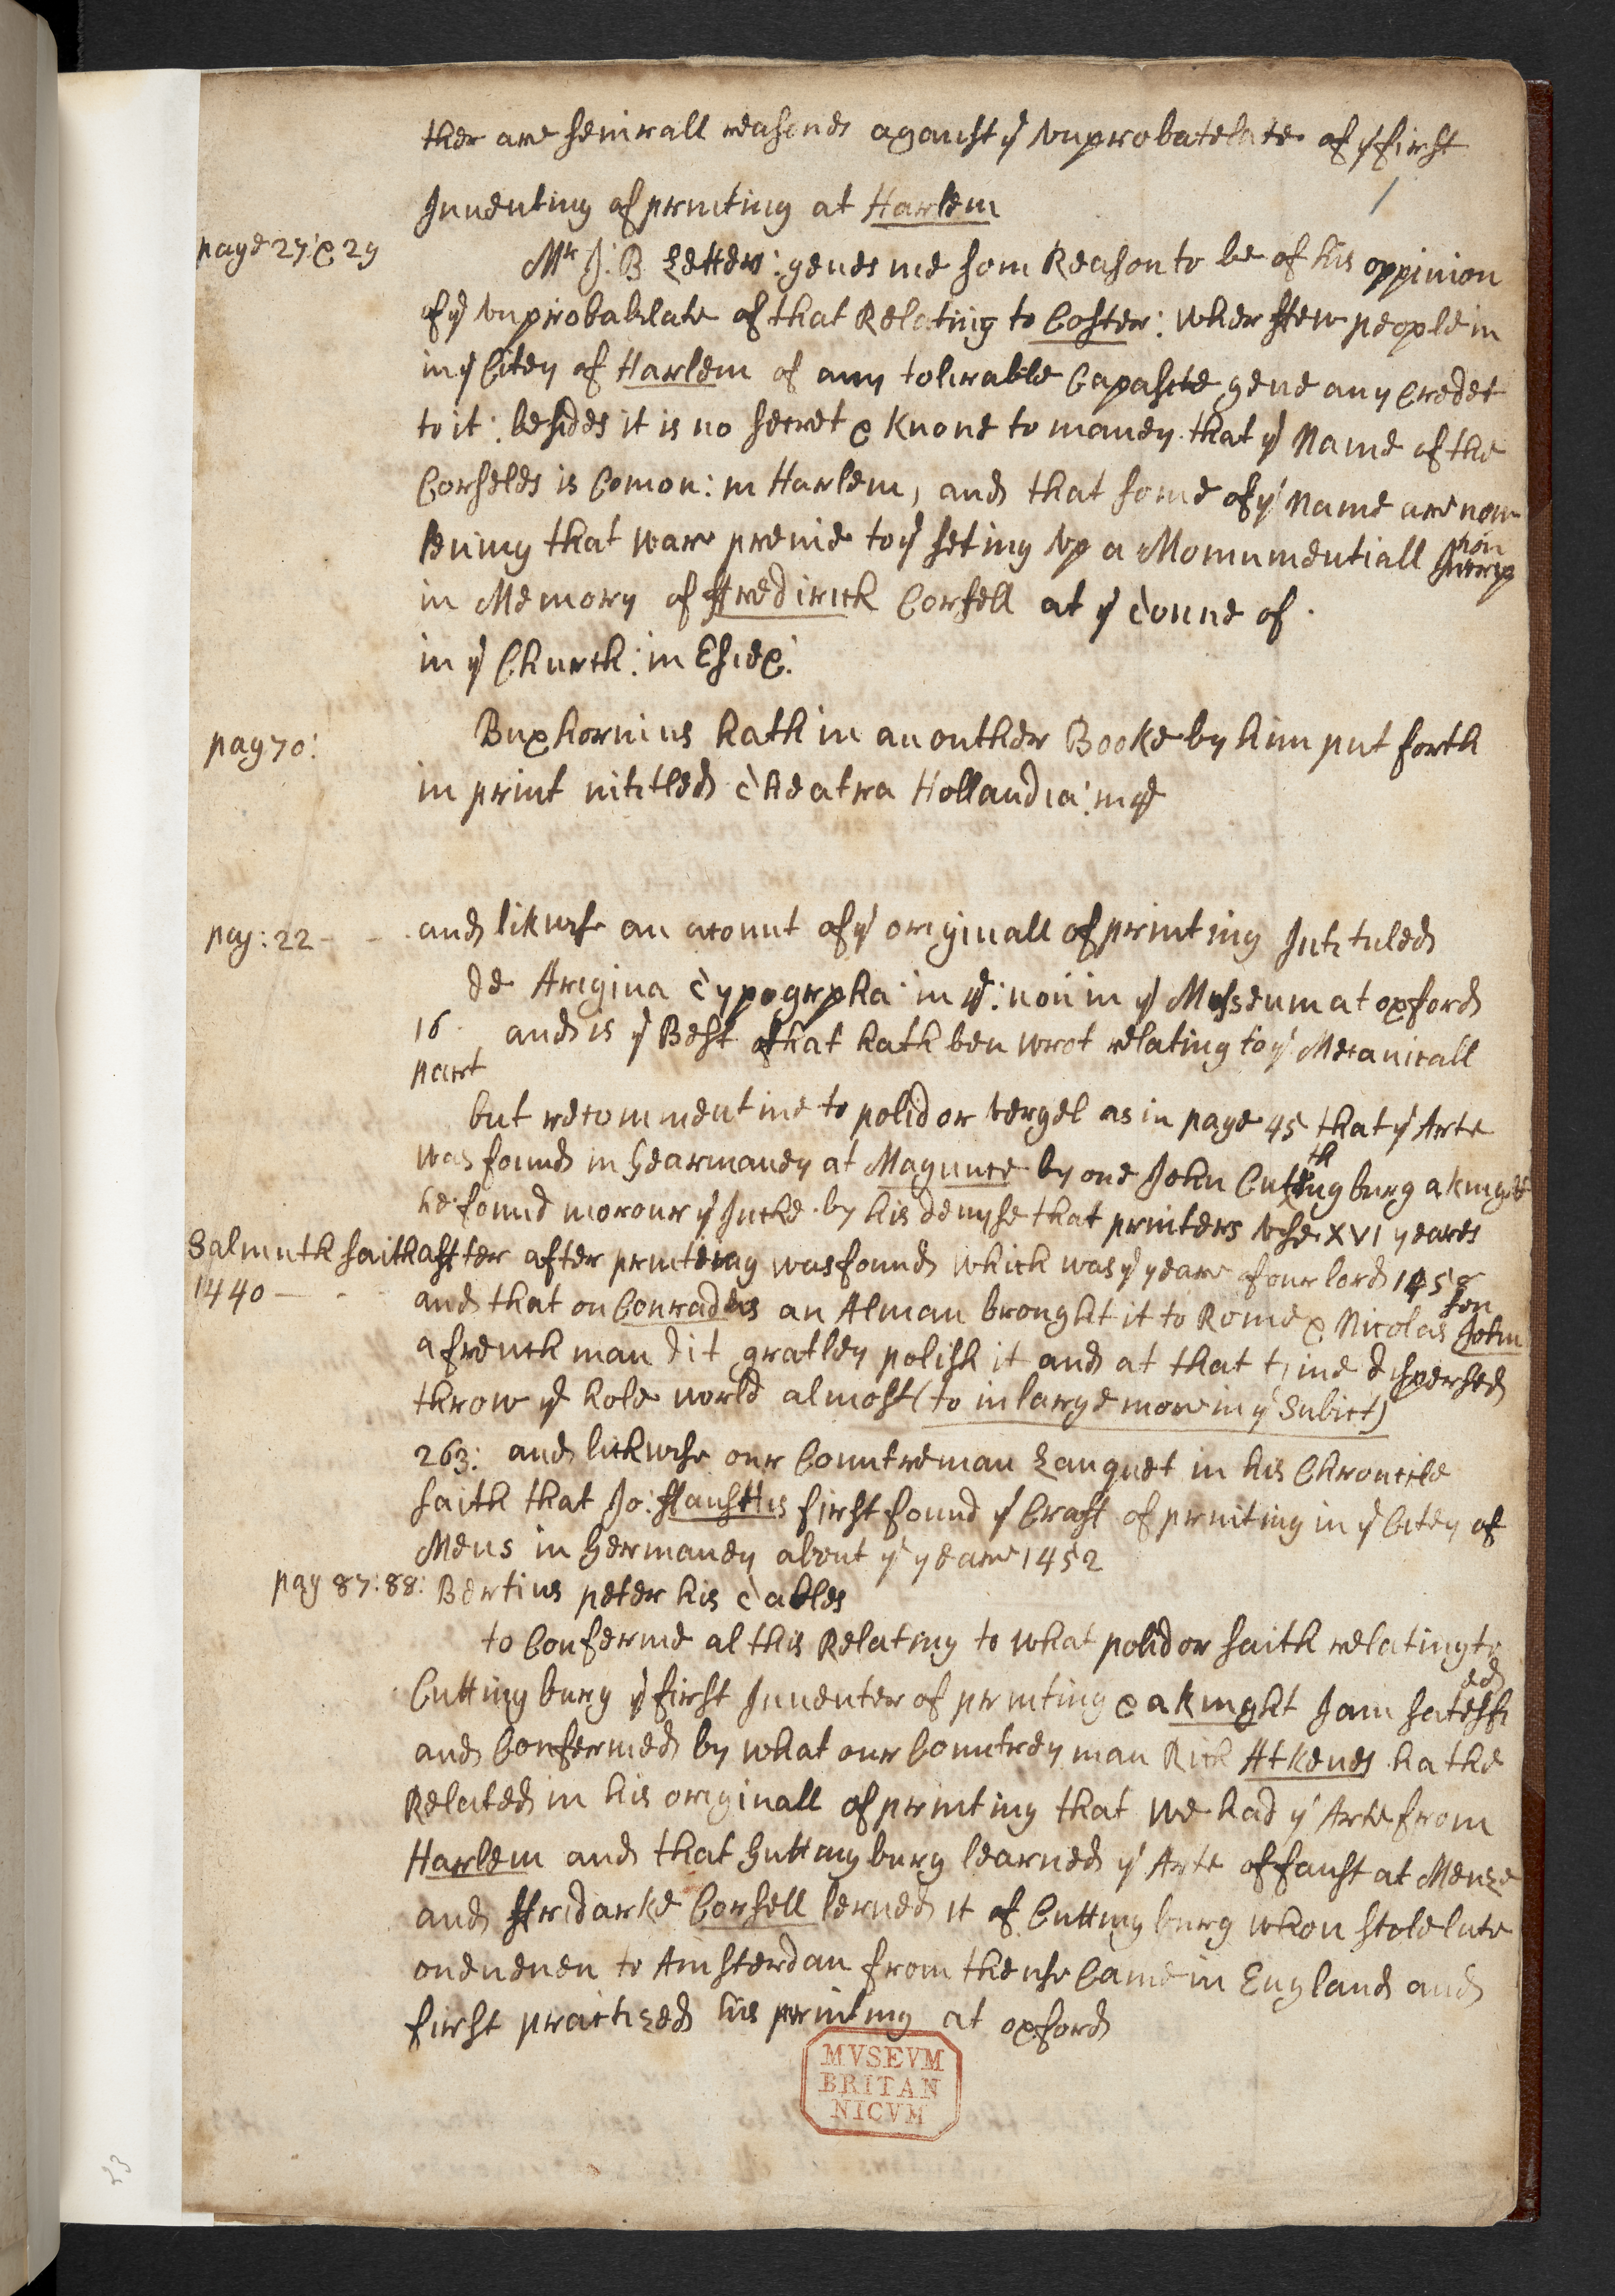 ther are seuirall reasones against yͤ vnprobatelate of yͤ first
1
Jnuenting of printing at Harlem
page 27: & 29
Mr J: B Letter: geues me som Reason to be of his oppinion
of yͤ vnprobablate of that Relating to Coster: wher ffew people in
in yͤ Citey of Harlem of anny tolirable Capasite geue any Credet
to it: besides it is no secret & knone to maney that yͤ Name of the
Corseles is Comon: in Harlem, and that some of yͤ Name are now
leuing that ware preuie to yͤ seting vp a Monnumentiall Inscrip
tion
in Memory of ffredirick Corsell at yͤ Toune of
in yͤ Church: in Essex:
pag 70:
Buxhornius hath in an outher Booke by him put forth
in print intitled Theatra Hollandia: in 4o
pag: 22 - - -
and likwise an acount of yͤ originall of printing Intituled
de Arigina Typogrpha: in 4o: now in yͤ Musseum at oxford
16 and is yͤ Best that hath ben wrot relating to yͤ Mecanicall
part
but recomment me to polidor vergel as in page 45 that yͤ Arte
was found in Gearmaney at Magunce by one John Cutengburg a knight
th
he found moreour yͤ Incke by his deuise that printers vse XVI yeares
Salmuth saith
after after printeing was found which was yͤ yeare of our lord 1458
1440 - - -
and that on Conradus an Alman brought it to Rome & Nicolas John
son
a french man dit gratley polish it and at that time dispersed
throw yͤ hole world almost (to inlarge more in yͤ Subict)
263: and lickwise our Countreman Lanquet in his Chronicle
saith that Jo: ffausttus first found yͤ Craft of printing in yͤ Citey of
Mens in Germaney about yͤ yeare 1452
pag 87: 88:
Bertius peter his Tables
to Conferme al this Relating to what polidor saith relating to
Cuttingburg yͤ first Inuenter of printing & a knight I am satesfi
ed
and Confermed by what our Countrey man Rich Atkenes hathe
Related in his originall of printing that we had yͤ Arte from
Harlem and that Guttingburg learned yͤ Arte of faust at Menze
and ffridarke Corsell lerned it of Cuttingburg whon stole late
one euen to Amsterdan from thense Came in England and
first practized his printing at oxford
MVSEVM
BRITAN
NICVM
23